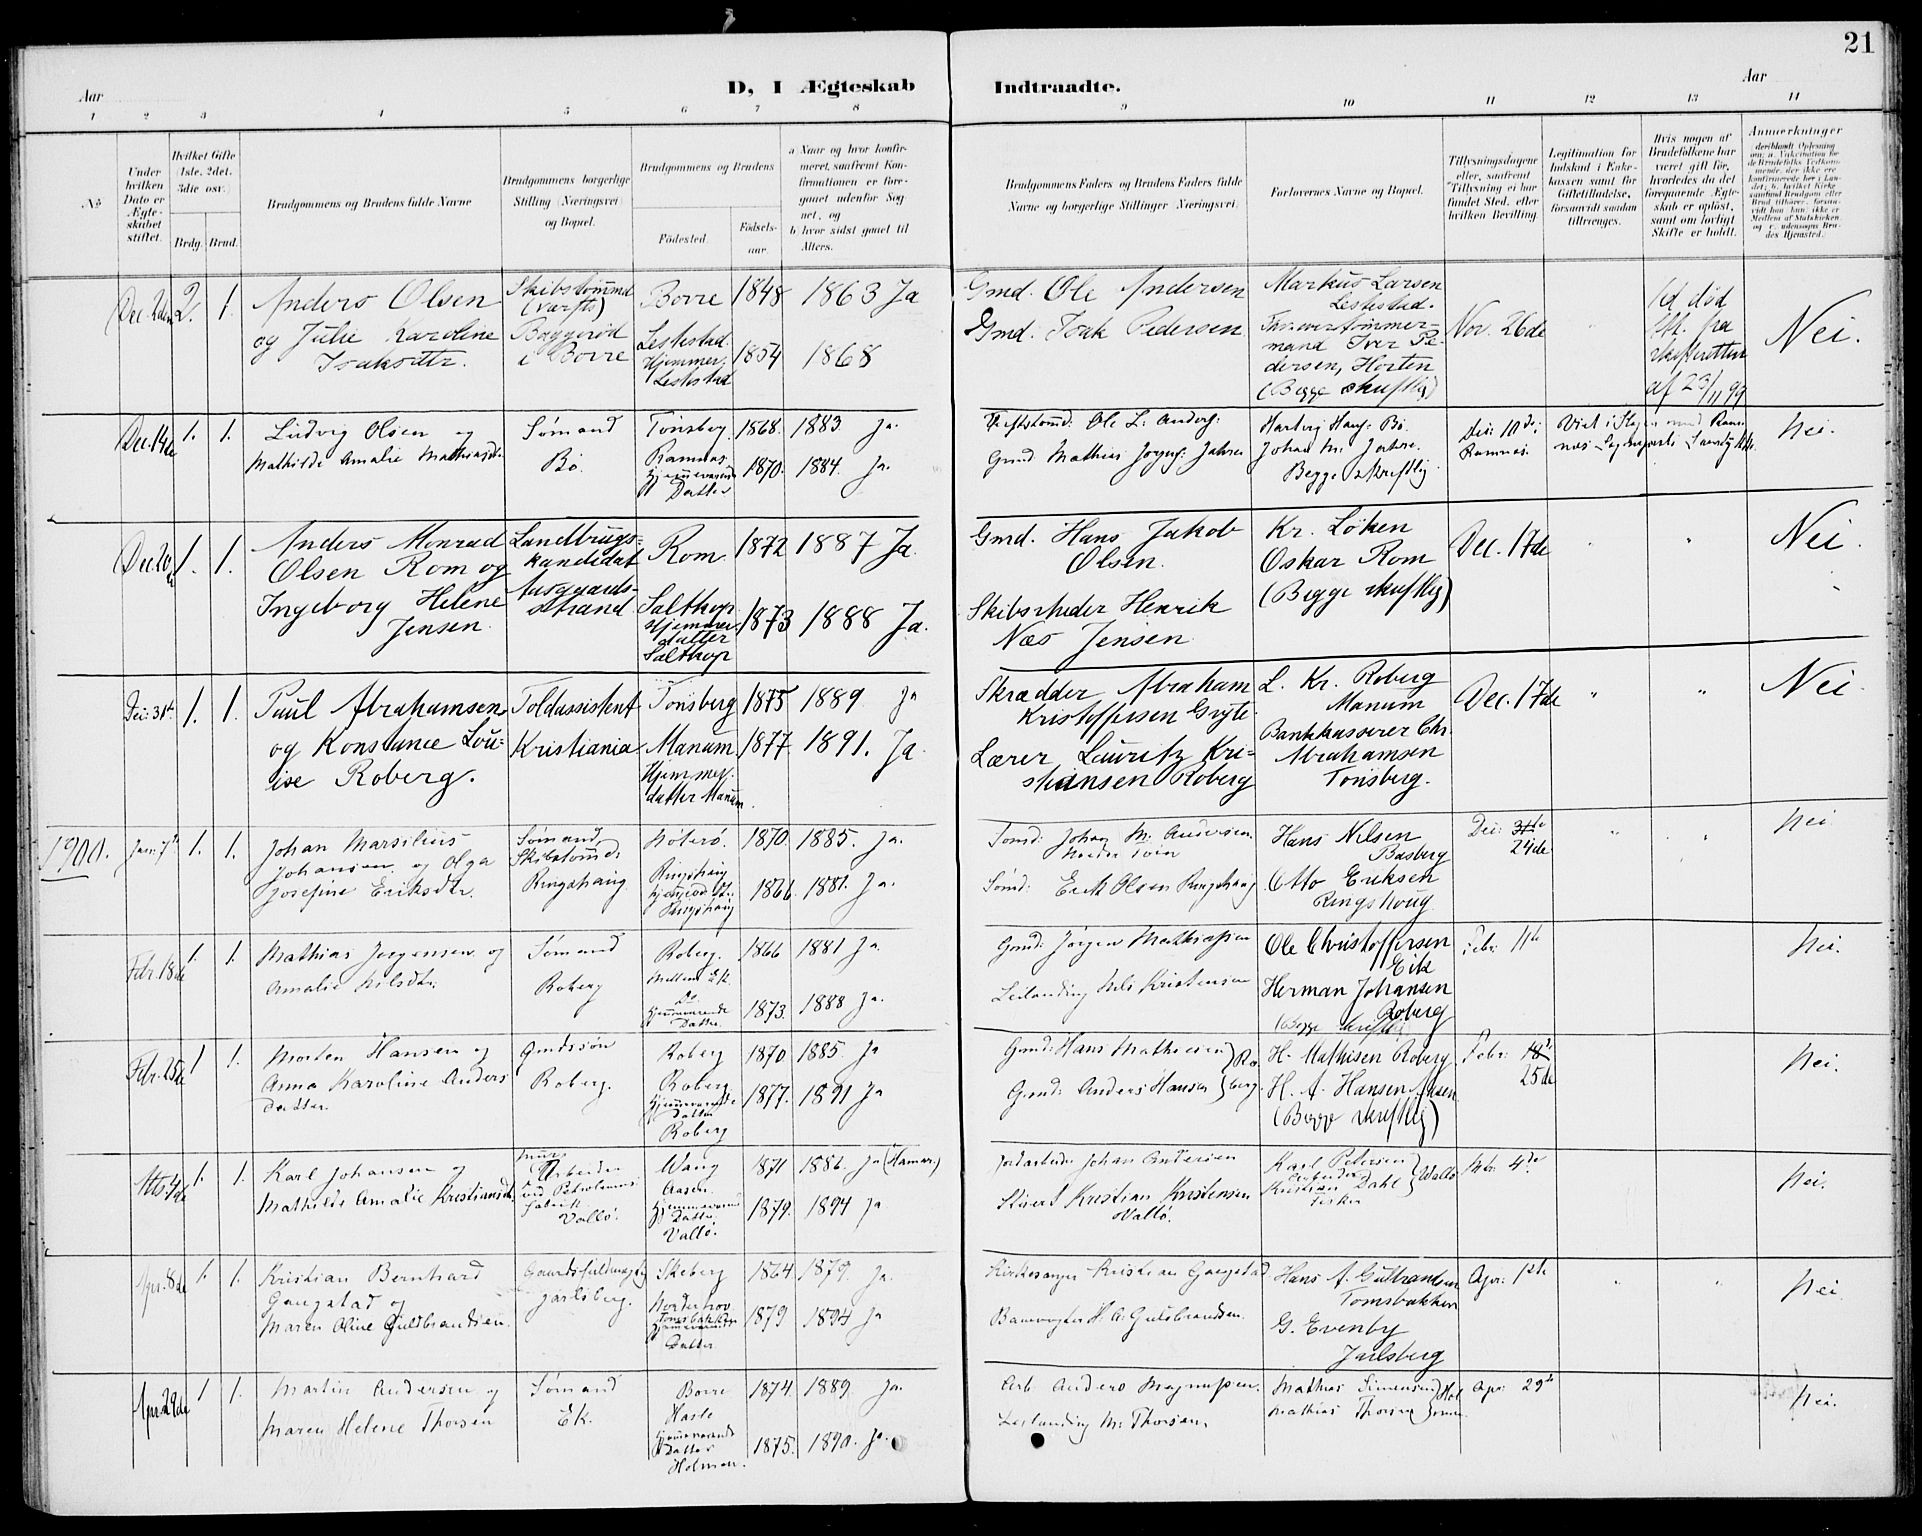 21
D, I Ægteskab Indtraadte.
Aar Aar
1 2 3 4 5 6 7 8 9 10 11 12 13 14
No
Under hvilken Dato er Ægteskabet stiftet.
Hvilket Gifte 1ste, 2det, 3die osv.
Brdg. Brud.
Brudgommens og Brudens fulde Navne
Brudgommens borgerlige Stilling (Næringsvei) og Bopæl.
Brudgommens og Brudens
Fødested. Fødselsaar.
a Naar og hvor konfirmeret, saafremt Konfirmationen er foregaaet udenfor Sognet, og
b hvor sidst gaaet til Alters.
Brudgommens Faders og Brudens Faders fulde Navne og borgerlige Stillinger (Næringsvei.
Forlovernes Navne og Bopæl.
Tillysningsdagene eller, saafremt Tillysning ei har fundet Sted, efter hvilken Bevilling.
Legitimation for Indskud i Enkekassen samt for Giftetilladelse, forsaavidt saadan tiltrænges.
Hvis nogen af Brudefolkene har været gift før, hvorledes da det foregaaende Ægteskab er opløst, samt om lovligt Skifte er holdt.
Anmerkninger
Dec. 2den 2. 1.
Anders Olsen
og Julie Karoline
Isaksdtr.
Skibstømmd
(værft)
Baggerød
i Borre
Borre 1848 1863 Ja
Lestestad
Hjemmer:
Lestestad
1854 1868
Gmd. Ole Andersen
Gmd. Isak Pedersen
Markus Larsen
Lestestad.
mand Iver Pe-
dersen, Horten
(Begge skriftlig)
Nov. 26de
skifteretten
af 23/11 99
Nei.
Dec. 14de 1. 1.
Ludvig Olsen og
Mathilde Amalie Mathiasdtr.
Sømand
Bø.
Tønsberg 1868. 1883 Ja.
Ramnæs.
Hjemmeværende
Datter
1870. 1884. Ja.
Ole L. Anders:
Gmd. Mathias Jørgs: Jahren
Johan M. Jahre.
Begge skriftlig
Dec: 10de;
Ramnes.
Nei.
Dec. 20 1. 1.
Anders Monrad
Olsen Rom og
Ingeborg Helene
Jensen.
Landbrugs-
kandidat
Aasgaards-
strand
Rom. 1872 1887 Ja.
Salthop
Hjemmev.
datter
Salthop
1873 1888 Ja.
Gmd. Hans Jakob
Olsen.
Skibsrheder Henrik
Næs Jensen
Kr. Løken
Oskar Rom
(Begge skriftlig)
Dec. 17de
Nei.
Dec: 31te 1. 1.
Paul Abrahamsen
og Konstance Lou-
ise Roberg.
Toldassistent
Kristiania
Tønsberg 1875 1889 Ja
Manum 1877 1891. Ja.
Hjemmev.
datter Manum.
Skrædder Abraham
Kristoffersen Gryte
Lærer Lauritz Kri-
stiansen Roberg
L. Kr. Roberg
Manum
Bankkasserer Chr.
Abrahamsen
Tønsberg.
Dec. 17de
Nei.
1900. Jan. 7de 1. 1.
Johan Marsilius
Johansen og Olga
Josefine Eriksdtr.
Sømand,
Skibstømmd:
Ringshaug
Nøterø. 1870. 1885. Ja.
Ringshaug
Ringshaug
1866. 1881. Ja.
Sømd: Johan M. Andersen
Sømd: Erik Olsen Ringshaug
Hans Nilsen
Basberg
Otto Eriksen
Ringshoug
Dec: 31te
24de
Nei.
Febr. 18de 1. 1.
Mathias Jørgensen og
Amalie Nilsdtr:
Sømand
Roberg
Roberg. 1866 1881 Ja.
Mellem Ek.
Hjemmeværende
Datter
1873. 1888 Ja.
Gmd: Jørgen Mathiassen
Leilænding Nils Kristensen
Ole Christoffersen
Eik
Herman Johansen
Roberg
(Begge skriftlig)
Febr: 11te
Nei.
Febr. 25de 1 1.
Morten Hansen og
Anna Karoline Anders
datter
Gmdssøn
Roberg.
Roberg 1870 1885. Ja
Roberg
Hjemmeværende
Datter
Roberg
1877. 1891 Ja
Gmd: Hans Mathisen
Gmd: Anders Hansen } Ro berg
H. Mathisen Roberg
H. A. Hansen
(Begge skriftlig)
Febr: 18de
25de
Nei.
Mts 4de 1. 1.
Karl Johansen og
Mathilde Amalie Kristiansdtr.
Arbeider
ved Petroleums
fabrik
Vallø.
Wang 1871 1886. Ja (Hamar.)
Aasen.
Hjemmeværende
Datter.
Vallø.
1879. 1894 Ja
Jordarbeider Johan Andersen
Kristian Kristensen
Vallø.
Karl Petersen
Arbeider
Kristian Dahl } Vallø
Fisker
Mts: 4de
Nei.
Apr. 8de 1. 1.
Kristian Bernhard
Gangstad og
Maren Oline Guldbrandsen.
Gaardsfuldmægtig
Jarlsberg.
Skeberg 1864 1879. Ja.
Norderhov
Tomsbakken
Hjemmeværende
Datter
1879 1894 Ja
Kirkesanger Kristian Gangstad
Banevogter H. A. Guldbrandsen.
Hans A. Gulbrandsen
Tomsbakken
G. Evenby
Jarlsberg
Apr: 1ste
Nei
Apr. 29de 1 1.
Martin Andersen og
Maren Helene Thorsen
Sømand
Ek.
Borre 1874 1889. Ja.
Hasle
Hjemmeværende
Datter
Holmen.
1875. 1890. Ja.
Arb. Anders Magnussen.
Leilænding M. Thorsen,
Mathias Simensen
Mathias Thorsen } Hol men.
Apr: 29de
Nei.